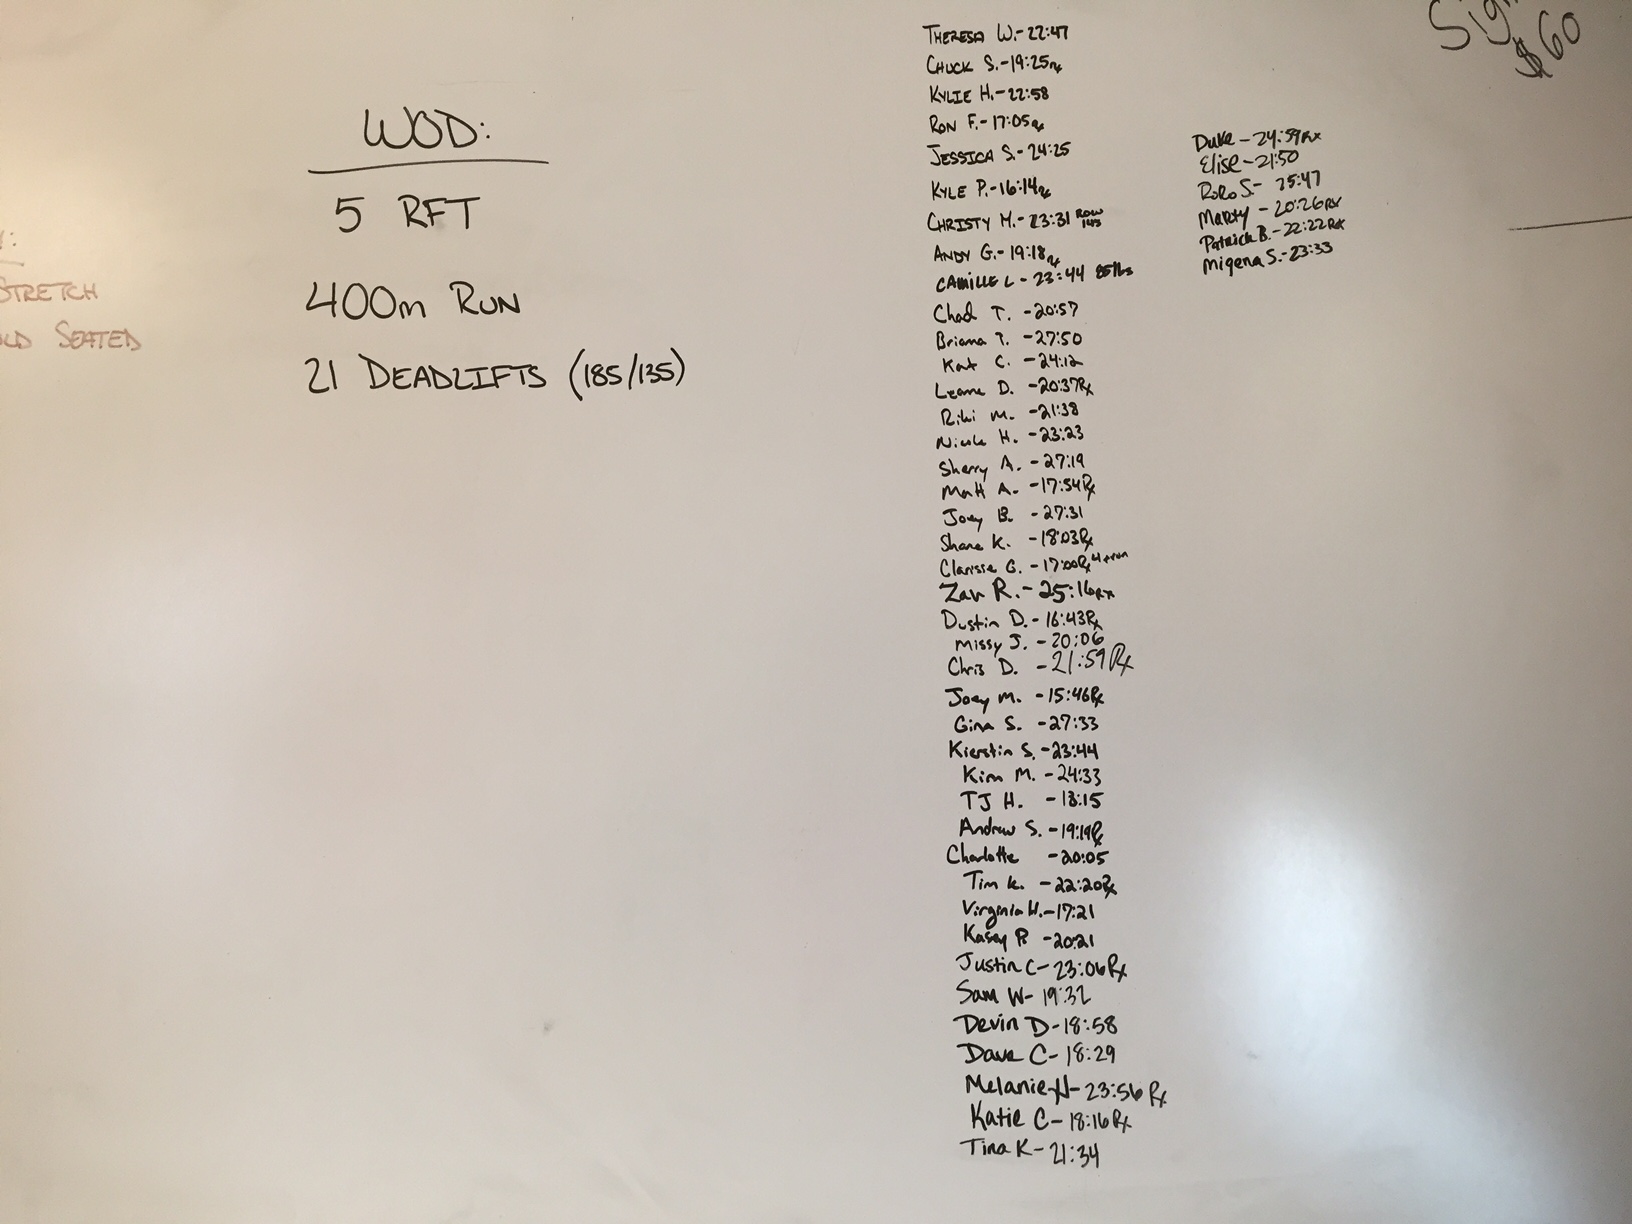 WOD:
5 RFT
400m RUN
21 DEADLIFTS (185/135)
STRETCH
SEATED
$60
THERESA W.- 22:47
CHUCK S.-19:25 Rx
KYLIE H.- 22:58
RON F.- 17:05 Rx
JESSICA S.- 24:25
KYLE P.-16:14 Rx
CHRISTY M.- 23:31 ROW 145
ANDY G.- 19:18 Rx
CAMILLE L - 23:44 85lbs
Chad T. -20:57
Briana T. -27:50
Kat C. -24:12
Leane D. -20:37Rx
Riki M. -21:38
Nicole H. -23:23
Sherry A. -27:19
Matt A. -17:54Rx
Joey B. -27:31
Shane K. -18:03Rx
Clarisse G. -17:00Rx 4+run
Zan R.- 25:16Rx
Dustin D.- 16:43Rx
Missy J. - 20:06
Chris D. -21:59 Rx
Joey M. -15:46Rx
Gina S. -27:33
Kierstin S. -23:44
Kim M. -24:33
TJ H. -18:15
Andrew S. -19:19Rx
Charlotte -20:05
Tim K. -22:20Rx
Virginia H.-17:21
Kasey P. -20:21
Justin C- 23:06 Rx
Sam W- 19:32
Devin D-18:58
Dave C- 18:29
Melanie H- 23:56 Rx
Katie C- 18:16 Rx
Tina K- 21:34
Duke - 24:59 Rx
Elise - 21:50
RoRo S- 25:47
Marty - 20:26 Rx
Patrick B.- 22:22 Rx
Migena S.- 23:33